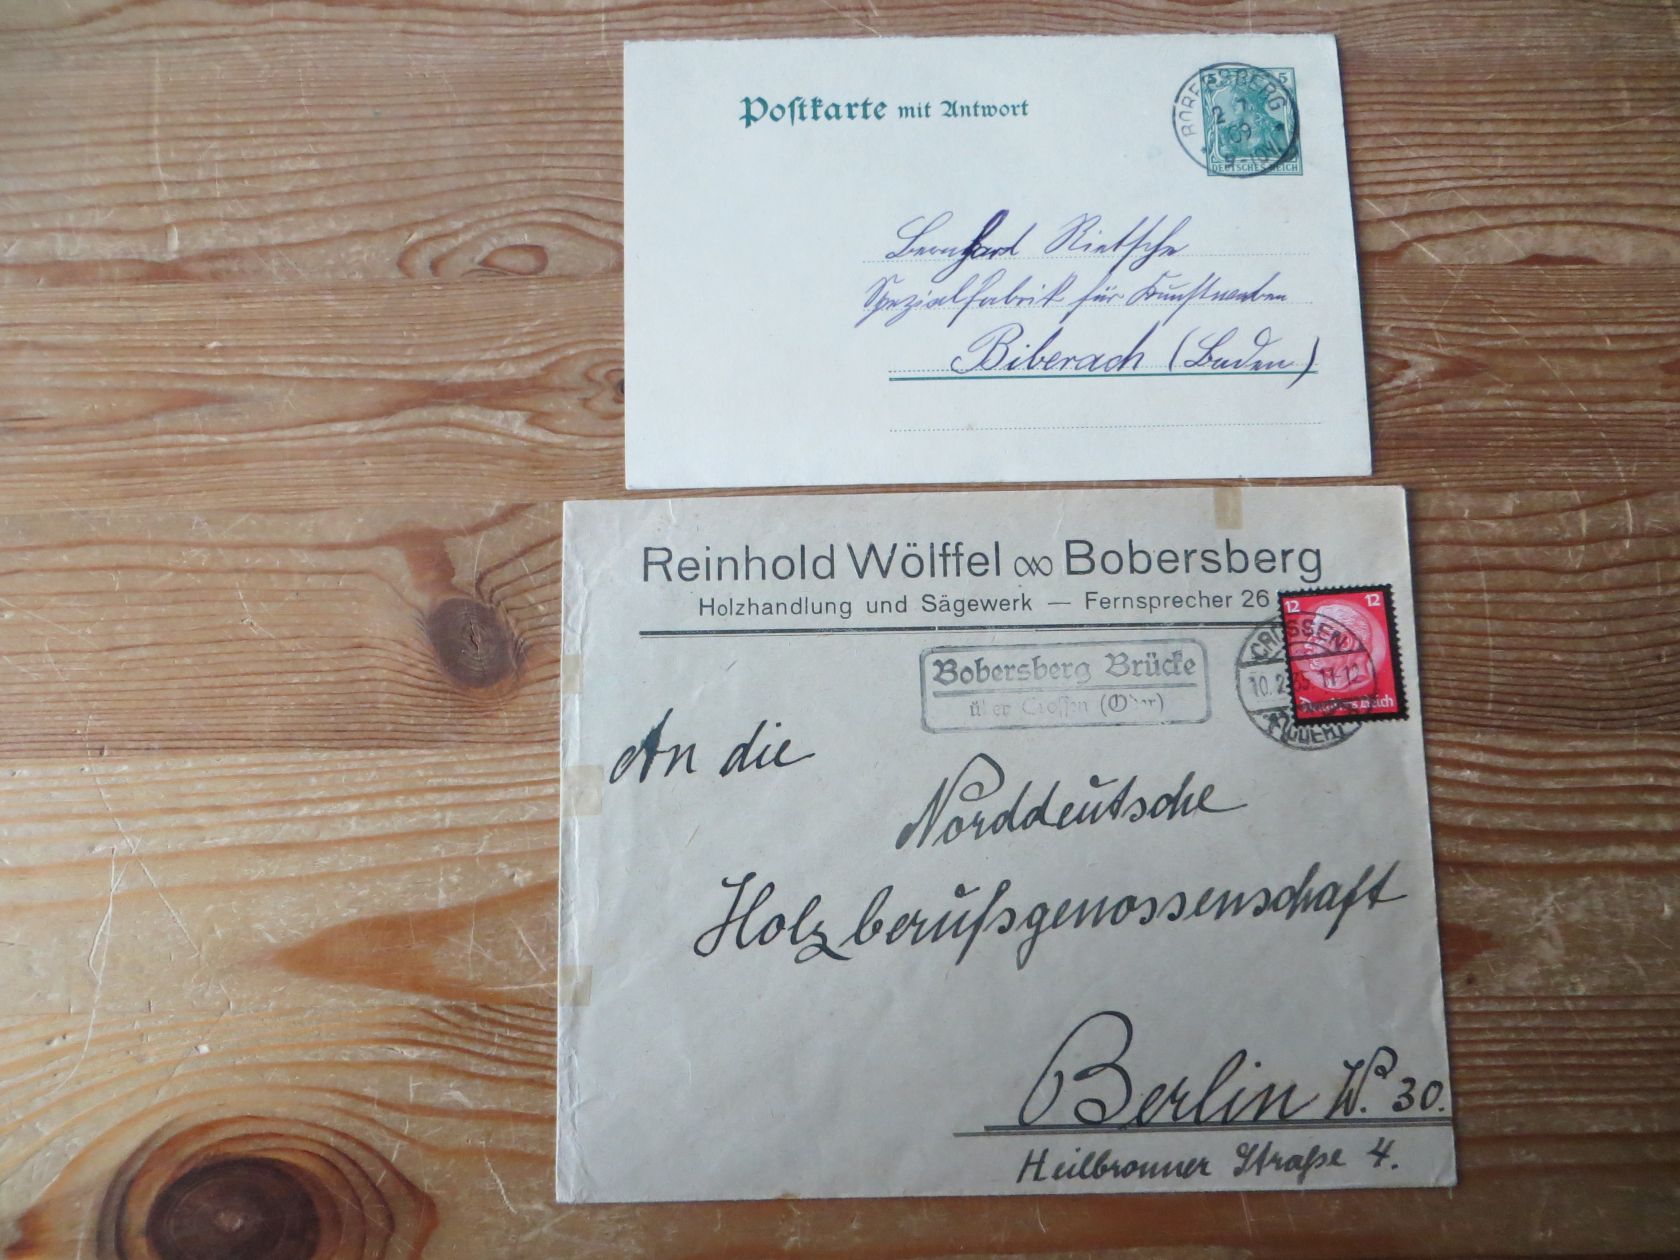 Postkarte mit Antwort
5 5
DEUTSCHES REICH
BOBERSBERG
2 7
09
Bernhard Rietsche
Spezialfabrik für Kunstwaben
Biberach (Baden)
Reinhold Wölffel Bobersberg
Holzhandlung und Sägewerk — Fernsprecher 26
12 12
Deutsches Reich
CROSSEN
10.2.35. 11-12
(ODER)
Bobersberg Brücke
über Crossen (Oder)
An die
Norddeutsche
Holzberufsgenossenschaft
Berlin W. 30.
Heilbronner Straße 4.